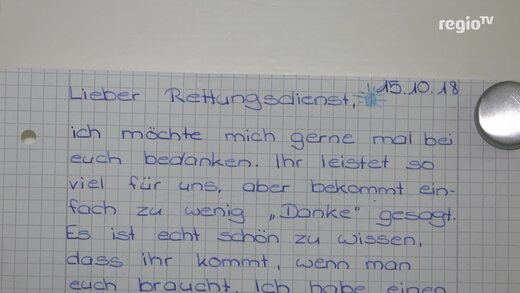 regioTV
15.10.18
Lieber Rettungsdienst,
ich möchte mich gerne mal bei
euch bedanken. Ihr leistet so
viel für uns, aber bekommt ein-
fach zu wenig „Danke" gesagt.
Es ist echt schön zu wissen,
dass ihr kommt, wenn man
euch braucht. Ich habe einen